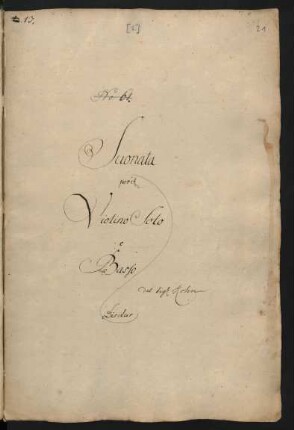 13.
[1]
21
No 64.
Suonata
per il
Violino Solo
e
Basso
del Sigr